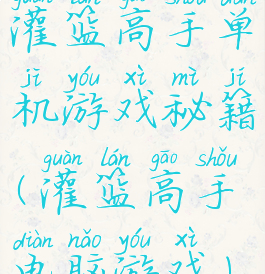 guàn lán gāo shǒu dān
灌篮高手单
jī yóu xì mì jí
机游戏秘籍
guàn lán gāo shǒu
(灌篮高手
diàn nǎo yóu xì
电脑游戏)